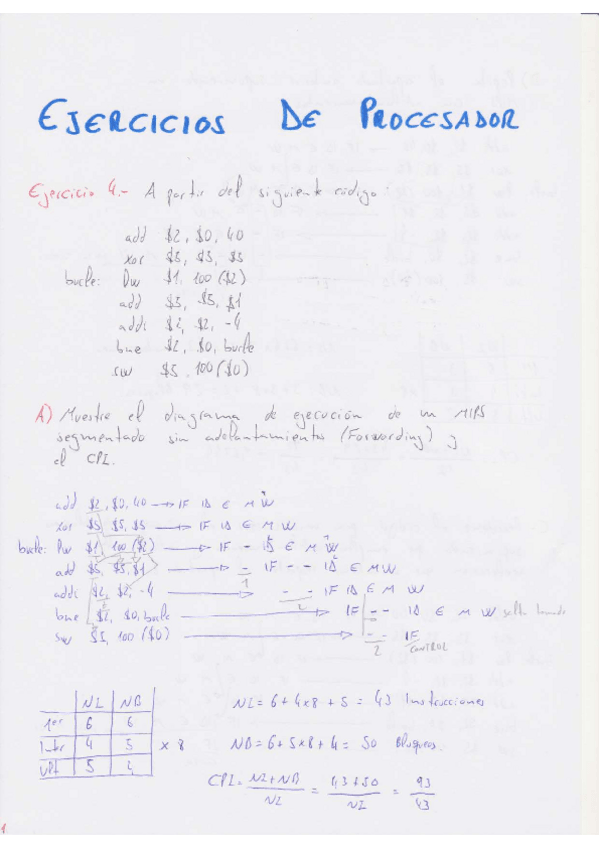 EJERCICIOS DE PROCESADOR
Ejercicio 4.- A partir del siguiente código:
add $2, $0, 40
xor $5, $5, $5
bucle: lw $1, 100($2)
add $5, $5, $1
addi $2, $2, -4
bne $2, $0, bucle
sw $5, 100($0)
A) Muestre el diagrama de ejecución de un MIPS
segmentado sin adelantamientos (Forwarding) y
el CPI.
add $2, $0, 40 → IF ID E M W
xor $5, $5, $5 → IF ID E M W
bucle: lw $1, 100($2) → IF - ID E M W
add $5, $5, $1 → - IF - - ID E M W
1
addi $2, $2, -4 → - - IF ID E M W
2
bne $2, $0, bucle → IF - - ID E M W salto tomado
sw $5, 100($0) → - - IF
2 CONTROL
NI NB
1er 6 6
Inter 4 5 x 8
Ult 5 4
NI = 6 + 4x8 + 5 = 43 Instrucciones
NB = 6 + 5x8 + 4 = 50 Bloqueos.
CPI = NI+NB / NI = 43+50 / NI = 93 / 43
1